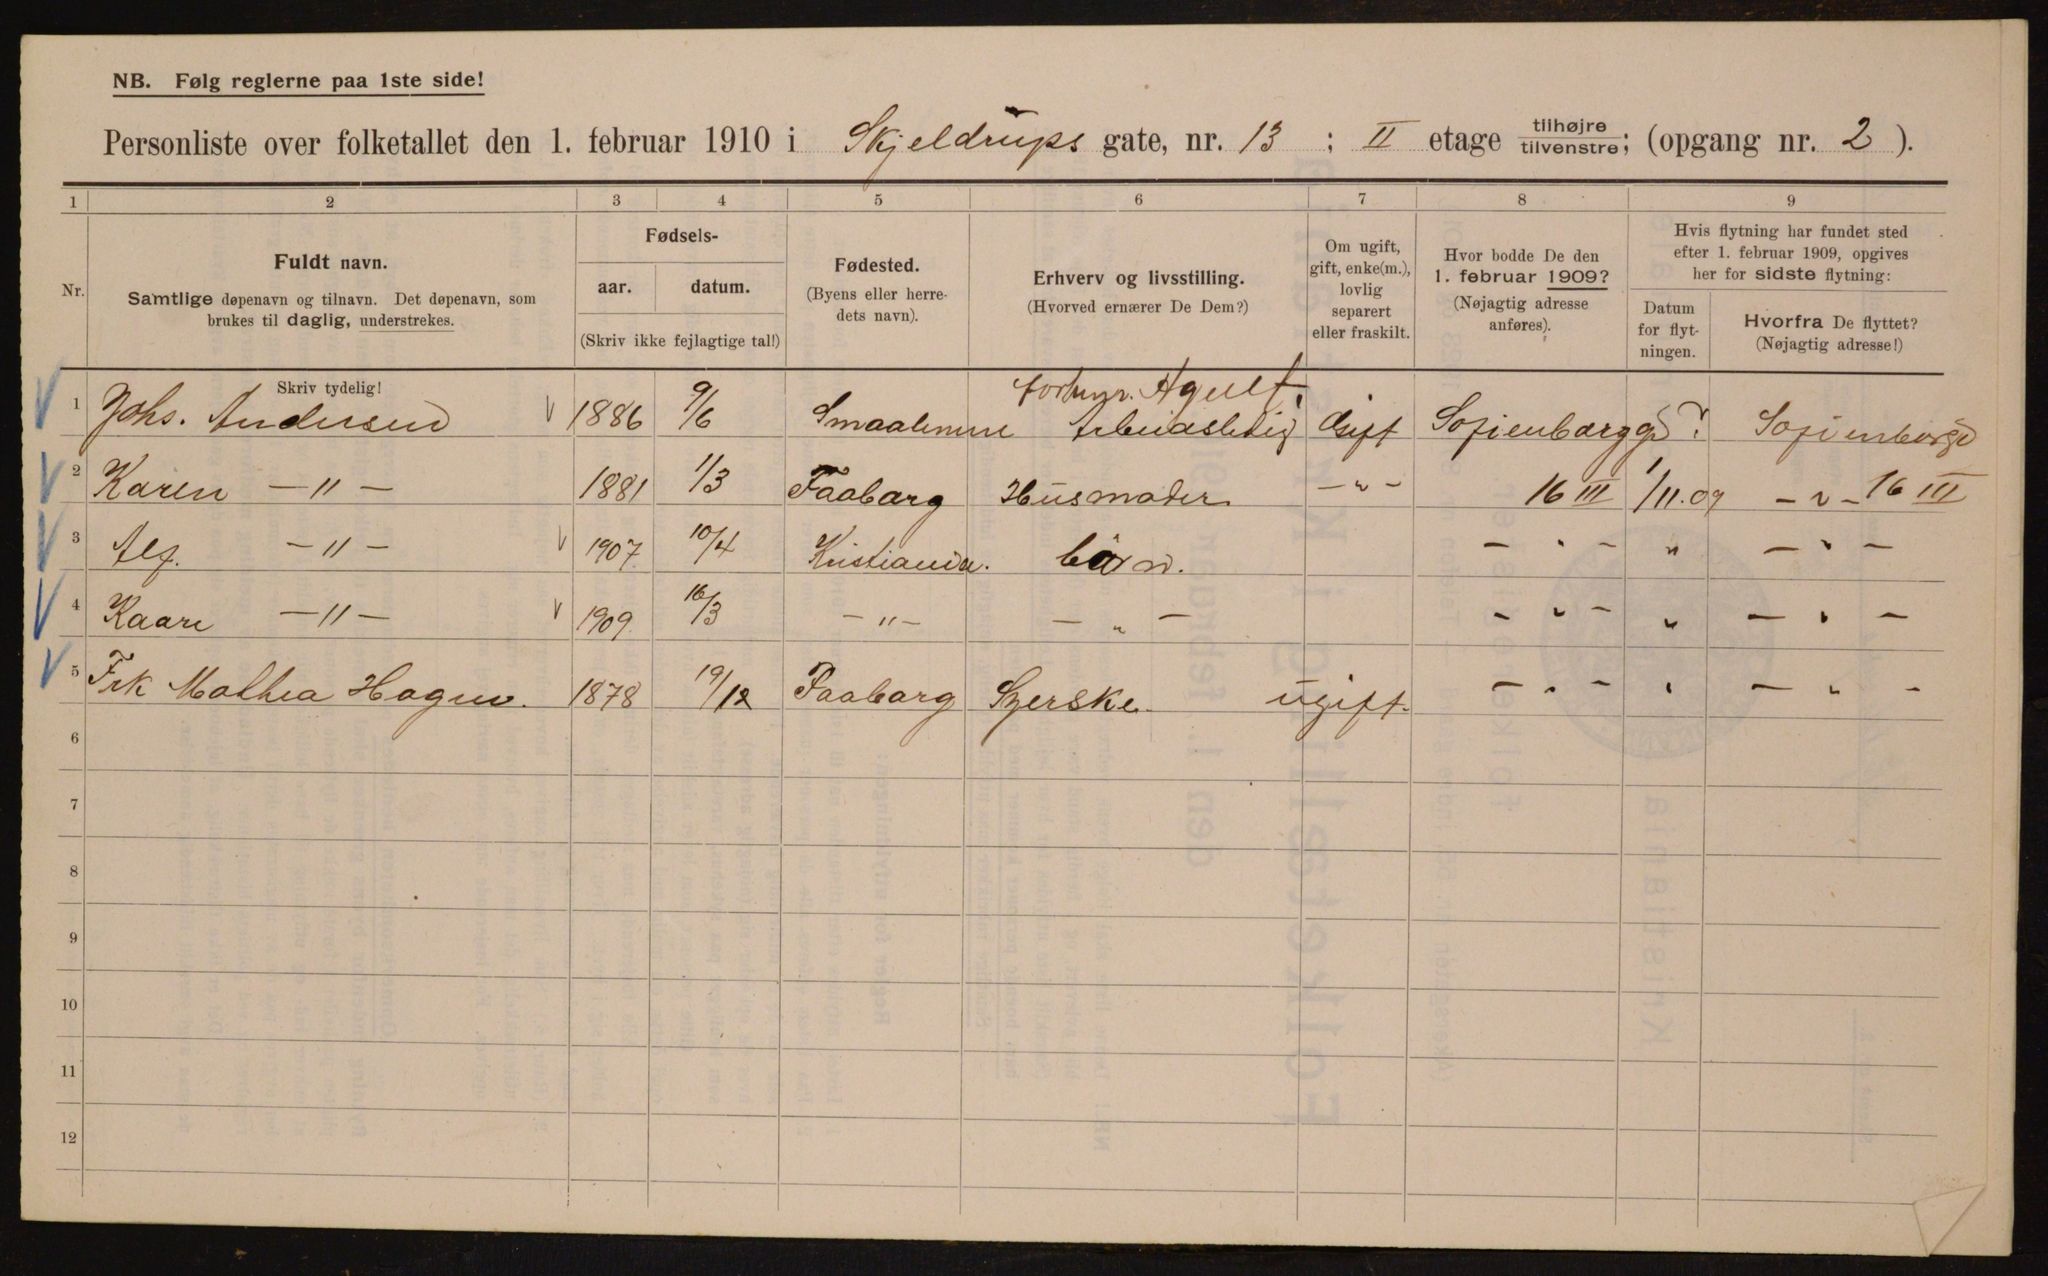 NB. Følg reglerne paa 1ste side!
Personliste over folketallet den 1. februar 1910 i Skjeldrups gate, nr. 13 ; II etage tilhøjre tilvenstre; (opgang nr. 2 ).
1 2 3 4 5 6 7 8 9
Nr.
Fuldt navn.
Samtlige døpenavn og tilnavn. Det døpenavn, som
brukes til daglig, understrekes.
Fødsels-
aar. datum.
(Skriv ikke fejlagtige tal!)
Fødested.
(Byens eller herre-
dets navn).
Erhverv og livsstilling.
(Hvorved ernærer De Dem?)
Om ugift,
gift, enke(m.),
lovlig
separert
eller fraskilt.
Hvor bodde De den
1. februar 1909?
(Nøjagtig adresse
anføres).
Hvis flytning har fundet sted
efter 1. februar 1909, opgives
her for sidste flytning:
Datum
for flyt-
ningen.
Hvorfra De flyttet?
(Nøjagtig adresse!)
Skriv tydelig!
1 Johs. Andersen 1886 9/6 Smaalenene Arbeidsledig Gift Sofienberggd ? Sofienberggd
2 Karen —"— 1881 1/3 Faaberg Husmoder —"— 16 III 1/11.09 —"— 16 III
3 Alf. —"— 1907 10/4 Kristiania. barn. — " — " — " —
4 Kaare —"— 1909 16/3 —"— — " — — " — " — " —
5 Frk Mathea Hagen. 1878 19/12 Faaberg Syerske ugift. — " — " — " —
6
7
8
9
10
11
12